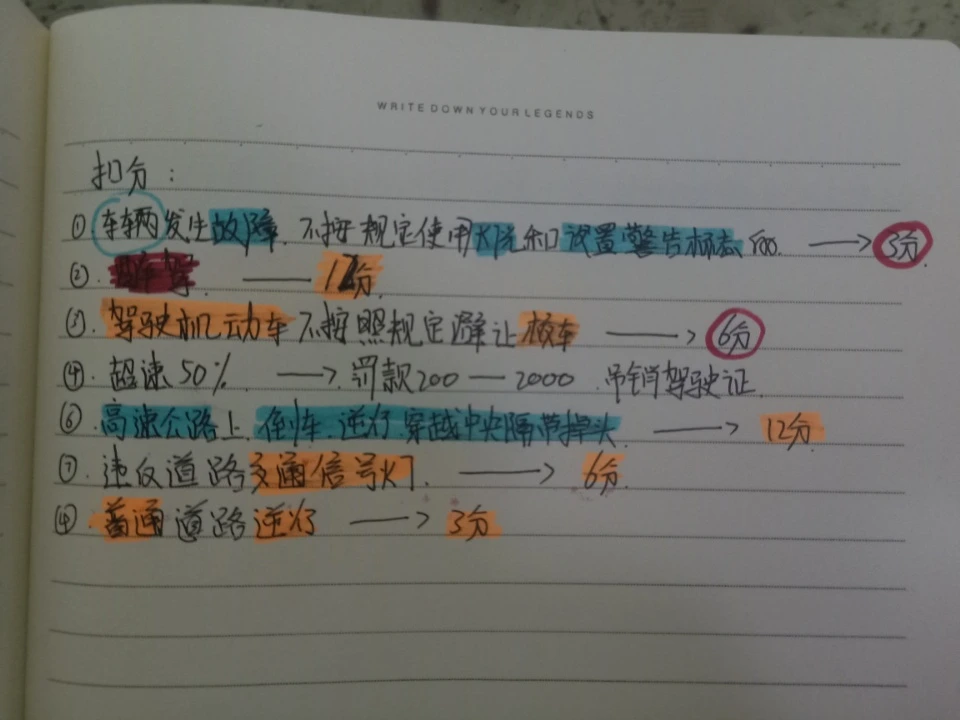 WRITE DOWN YOUR LEGENDS
扣分：
① 车辆发生故障. 不按规定使用灯光和设置警告标志 → 3分.
②. —— 12分.
③. 驾驶机动车不按照规定避让校车 → 6分
④. 超速50%. → 罚款200—2000 吊销驾驶证.
⑥. 高速公路上. 倒车. 逆行. 穿越中央隔带掉头. → 12分.
⑦. 违反道路交通信号灯. → 6分.
⑭. 普通道路逆行 → 3分